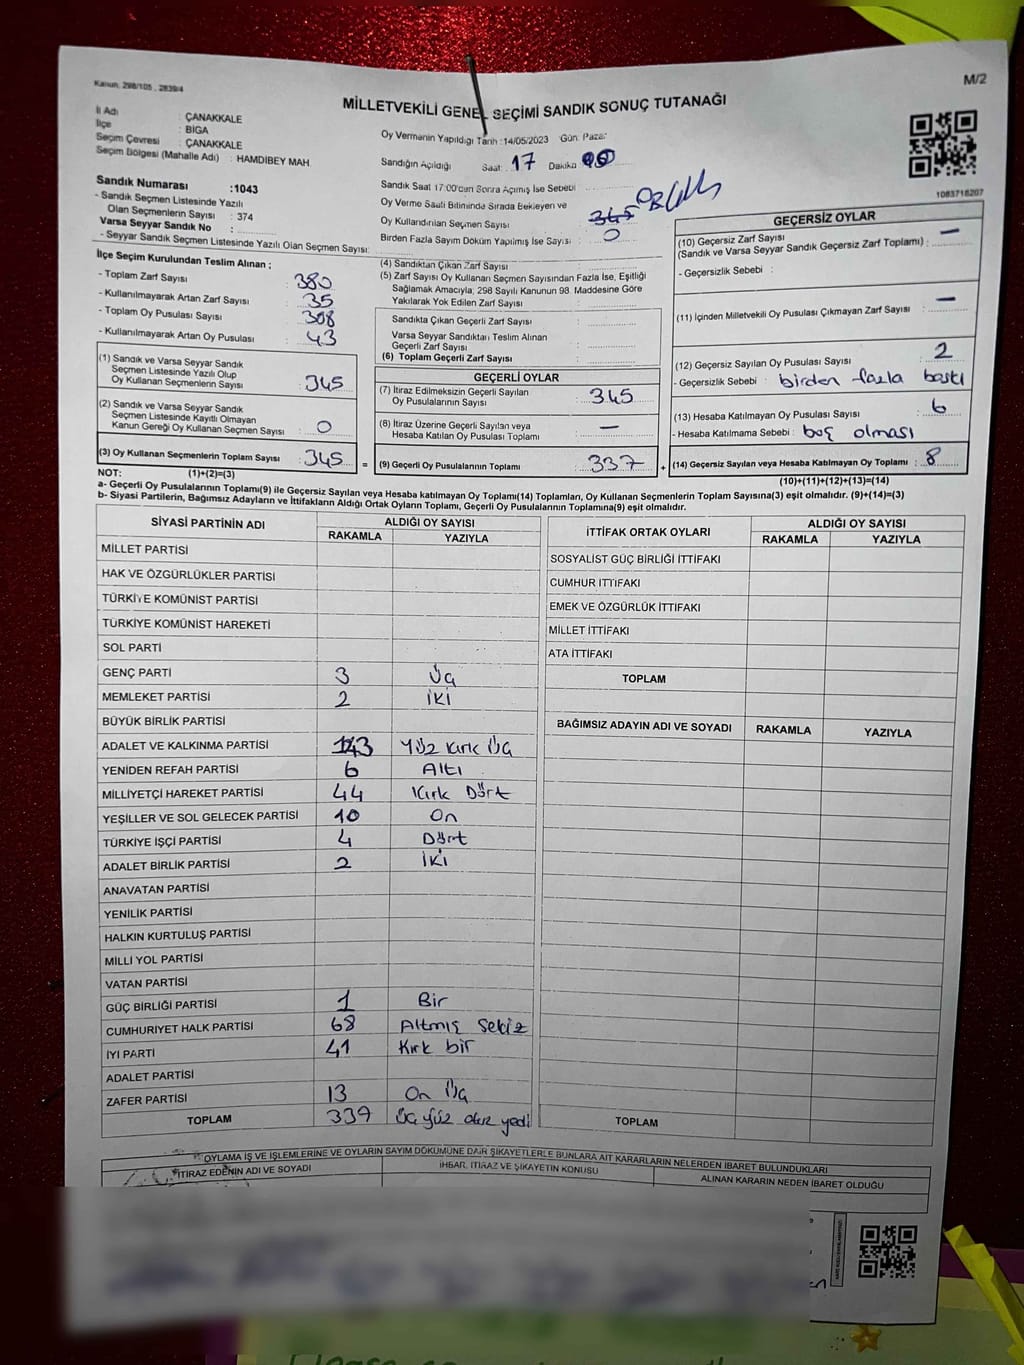 Kanun, 298/105 , 2839/4
M/2
MİLLETVEKİLİ GENEL SEÇİMİ SANDIK SONUÇ TUTANAĞI
İl Adı : ÇANAKKALE
İlçe : BİGA
Seçim Çevresi : ÇANAKKALE
Seçim Bölgesi (Mahalle Adı) : HAMDİBEY MAH.
Oy Vermenin Yapıldığı Tarih :14/05/2023 Gün: Pazar
Sandığın Açıldığı Saat: 17 Dakika
Sandık Saat 17:00'dan Sonra Açılmış İse Sebebi
Oy Verme Saati Bitiminde Sırada Bekleyen ve
Oy Kullandırılan Seçmen Sayısı : 345
Birden Fazla Sayım Döküm Yapılmış İse Sayısı : 0
1083718207
Sandık Numarası :1043
- Sandık Seçmen Listesinde Yazılı
Olan Seçmenlerin Sayısı : 374
Varsa Seyyar Sandık No :
- Seyyar Sandık Seçmen Listesinde Yazılı Olan Seçmen Sayısı:
İlçe Seçim Kurulundan Teslim Alınan ;
- Toplam Zarf Sayısı : 380
- Kullanılmayarak Artan Zarf Sayısı : 35
- Toplam Oy Pusulası Sayısı : 308
- Kullanılmayarak Artan Oy Pusulası : 43
(1) Sandık ve Varsa Seyyar Sandık
Seçmen Listesinde Yazılı Olup
Oy Kullanan Seçmenlerin Sayısı : 345
(2) Sandık ve Varsa Seyyar Sandık
Seçmen Listesinde Kayıtlı Olmayan
Kanun Gereği Oy Kullanan Seçmen Sayısı : 0
(3) Oy Kullanan Seçmenlerin Toplam Sayısı : 345
(4) Sandıktan Çıkan Zarf Sayısı :
(5) Zarf Sayısı Oy Kullanan Seçmen Sayısından Fazla İse, Eşitliği
Sağlamak Amacıyla; 298 Sayılı Kanunun 98. Maddesine Göre
Yakılarak Yok Edilen Zarf Sayısı :
Sandıkta Çıkan Geçerli Zarf Sayısı :
Varsa Seyyar Sandıktan Teslim Alınan
Geçerli Zarf Sayısı :
(6) Toplam Geçerli Zarf Sayısı :
GEÇERLİ OYLAR
(7) İtiraz Edilmeksizin Geçerli Sayılan
Oy Pusulalarının Sayısı : 345
(8) İtiraz Üzerine Geçerli Sayılan veya
Hesaba Katılan Oy Pusulası Toplamı : —
= (9) Geçerli Oy Pusulalarının Toplamı : 337
GEÇERSİZ OYLAR
(10) Geçersiz Zarf Sayısı
(Sandık ve Varsa Seyyar Sandık Geçersiz Zarf Toplamı) : —
- Geçersizlik Sebebi :
(11) İçinden Milletvekili Oy Pusulası Çıkmayan Zarf Sayısı : —
(12) Geçersiz Sayılan Oy Pusulası Sayısı : 2
- Geçersizlik Sebebi : birden fazla baskı
(13) Hesaba Katılmayan Oy Pusulası Sayısı : 6
- Hesaba Katılmama Sebebi : boş olması
+ (14) Geçersiz Sayılan veya Hesaba Katılmayan Oy Toplamı : 8
NOT: (1)+(2)=(3)
(10)+(11)+(12)+(13)=(14)
a- Geçerli Oy Pusulalarının Toplamı(9) ile Geçersiz Sayılan veya Hesaba katılmayan Oy Toplamı(14) Toplamları, Oy Kullanan Seçmenlerin Toplam Sayısına(3) eşit olmalıdır. (9)+(14)=(3)
b- Siyasi Partilerin, Bağımsız Adayların ve İttifakların Aldığı Ortak Oyların Toplamı, Geçerli Oy Pusulalarının Toplamına(9) eşit olmalıdır.
SİYASİ PARTİNİN ADI ALDIĞI OY SAYISI
RAKAMLA YAZIYLA
MİLLET PARTİSİ
HAK VE ÖZGÜRLÜKLER PARTİSİ
TÜRKİYE KOMÜNİST PARTİSİ
TÜRKİYE KOMÜNİST HAREKETİ
SOL PARTİ
GENÇ PARTİ 3 Üç
MEMLEKET PARTİSİ 2 İKİ
BÜYÜK BİRLİK PARTİSİ
ADALET VE KALKINMA PARTİSİ 143 Yüz Kırk Üç
YENİDEN REFAH PARTİSİ 6 Altı
MİLLİYETÇİ HAREKET PARTİSİ 44 Kırk Dört
YEŞİLLER VE SOL GELECEK PARTİSİ 10 On
TÜRKİYE İŞÇİ PARTİSİ 4 Dört
ADALET BİRLİK PARTİSİ 2 İKİ
ANAVATAN PARTİSİ
YENİLİK PARTİSİ
HALKIN KURTULUŞ PARTİSİ
MİLLİ YOL PARTİSİ
VATAN PARTİSİ
GÜÇ BİRLİĞİ PARTİSİ 1 Bir
CUMHURİYET HALK PARTİSİ 68 Altmış Sekiz
İYİ PARTİ 41 Kırk bir
ADALET PARTİSİ
ZAFER PARTİSİ 13 On Üç
TOPLAM 337 Üç yüz otuz yedi
İTTİFAK ORTAK OYLARI ALDIĞI OY SAYISI
RAKAMLA YAZIYLA
SOSYALİST GÜÇ BİRLİĞİ İTTİFAKI
CUMHUR İTTİFAKI
EMEK VE ÖZGÜRLÜK İTTİFAKI
MİLLET İTTİFAKI
ATA İTTİFAKI
TOPLAM
BAĞIMSIZ ADAYIN ADI VE SOYADI RAKAMLA YAZIYLA
TOPLAM
OYLAMA İŞ VE İŞLEMLERİNE VE OYLARIN SAYIM DÖKÜMÜNE DAİR ŞİKAYETLERLE BUNLARA AİT KARARLARIN NELERDEN İBARET BULUNDUKLARI
İTİRAZ EDENİN ADI VE SOYADI
İHBAR, İTİRAZ VE ŞİKAYETİN KONUSU
ALINAN KARARIN NEDEN İBARET OLDUĞU